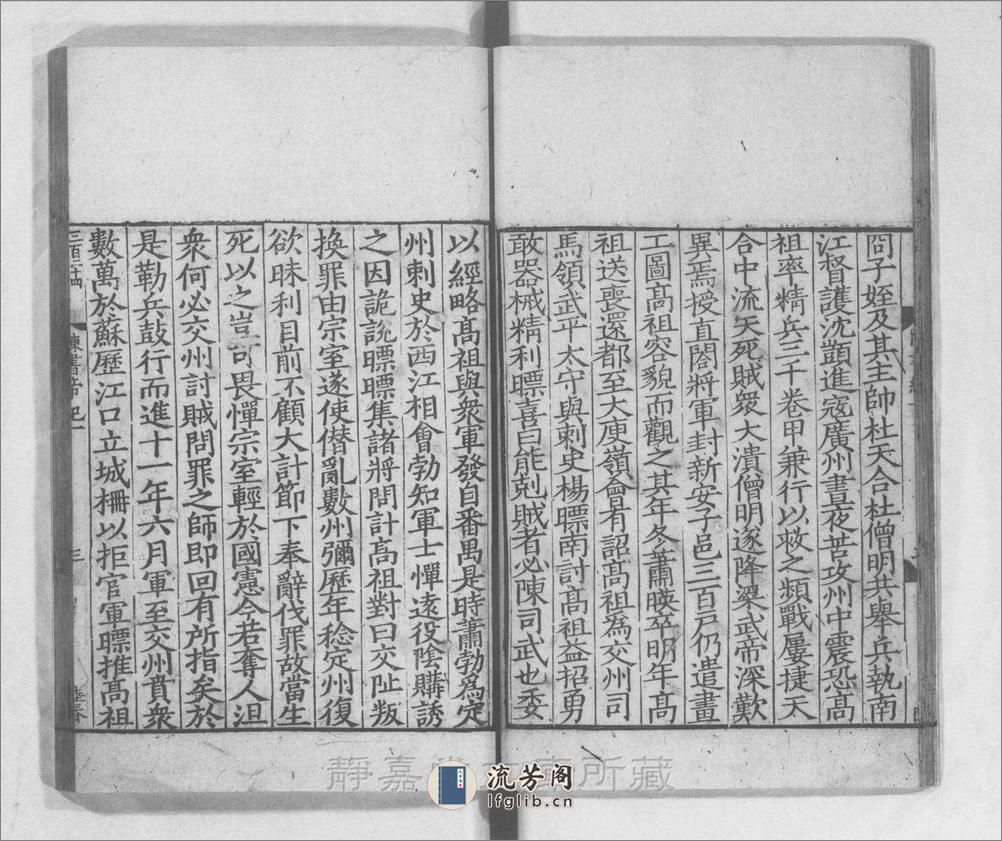 冏子姪及其主帥杜天合杜僧明共舉兵執南
江督護沈顗進寇廣州晝夜苦攻州中震恐髙
祖率精兵三千卷甲兼行以救之頻戰屢捷天
合中流矢死賊衆大潰僧明遂降梁武帝深歎
異焉授直閤將軍封新安子邑三百戶仍遣畫
工圖髙祖容貌而觀之其年冬蕭暎卒明年髙
祖送喪還都至大庾嶺會有詔髙祖為交州司
馬領武平太守與刺史楊㬓南討髙祖益招勇
敢器械精利㬓喜曰能剋賊者必陳司武也委
以經略髙祖與衆軍發自番禺是時蕭勃為定
州刺史於西江相會勃知軍士憚遠役隂購誘
之因詭說㬓㬓集諸將問計髙祖對曰交阯叛
換罪由宗室遂使僭亂數州彌歷年稔定州復
欲昧利目前不顧大計節下奉辭伐罪故當生
死以之豈可畏憚宗室輕於國憲今若奪人沮
衆何必交州討賊問罪之師即回有所指矣於
是勒兵鼓行而進十一年六月軍至交州賁衆
數萬於蘇歷江口立城柵以拒官軍㬓推髙祖
陳書帝紀一
三
靜嘉堂文庫所藏
流芳阁
lfglib.cn